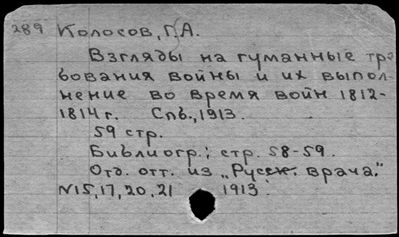 289 Колосов, Г.А.
Взгляды на гуманные тре-
бования войны и их выпол-
нение во время войн 1812-
1814 г. Спб., 1913.
59 стр.
Библиогр.; стр. 58-59.
Отд. отт. из „Русск. врача."
N15, 17, 20, 21 1913.